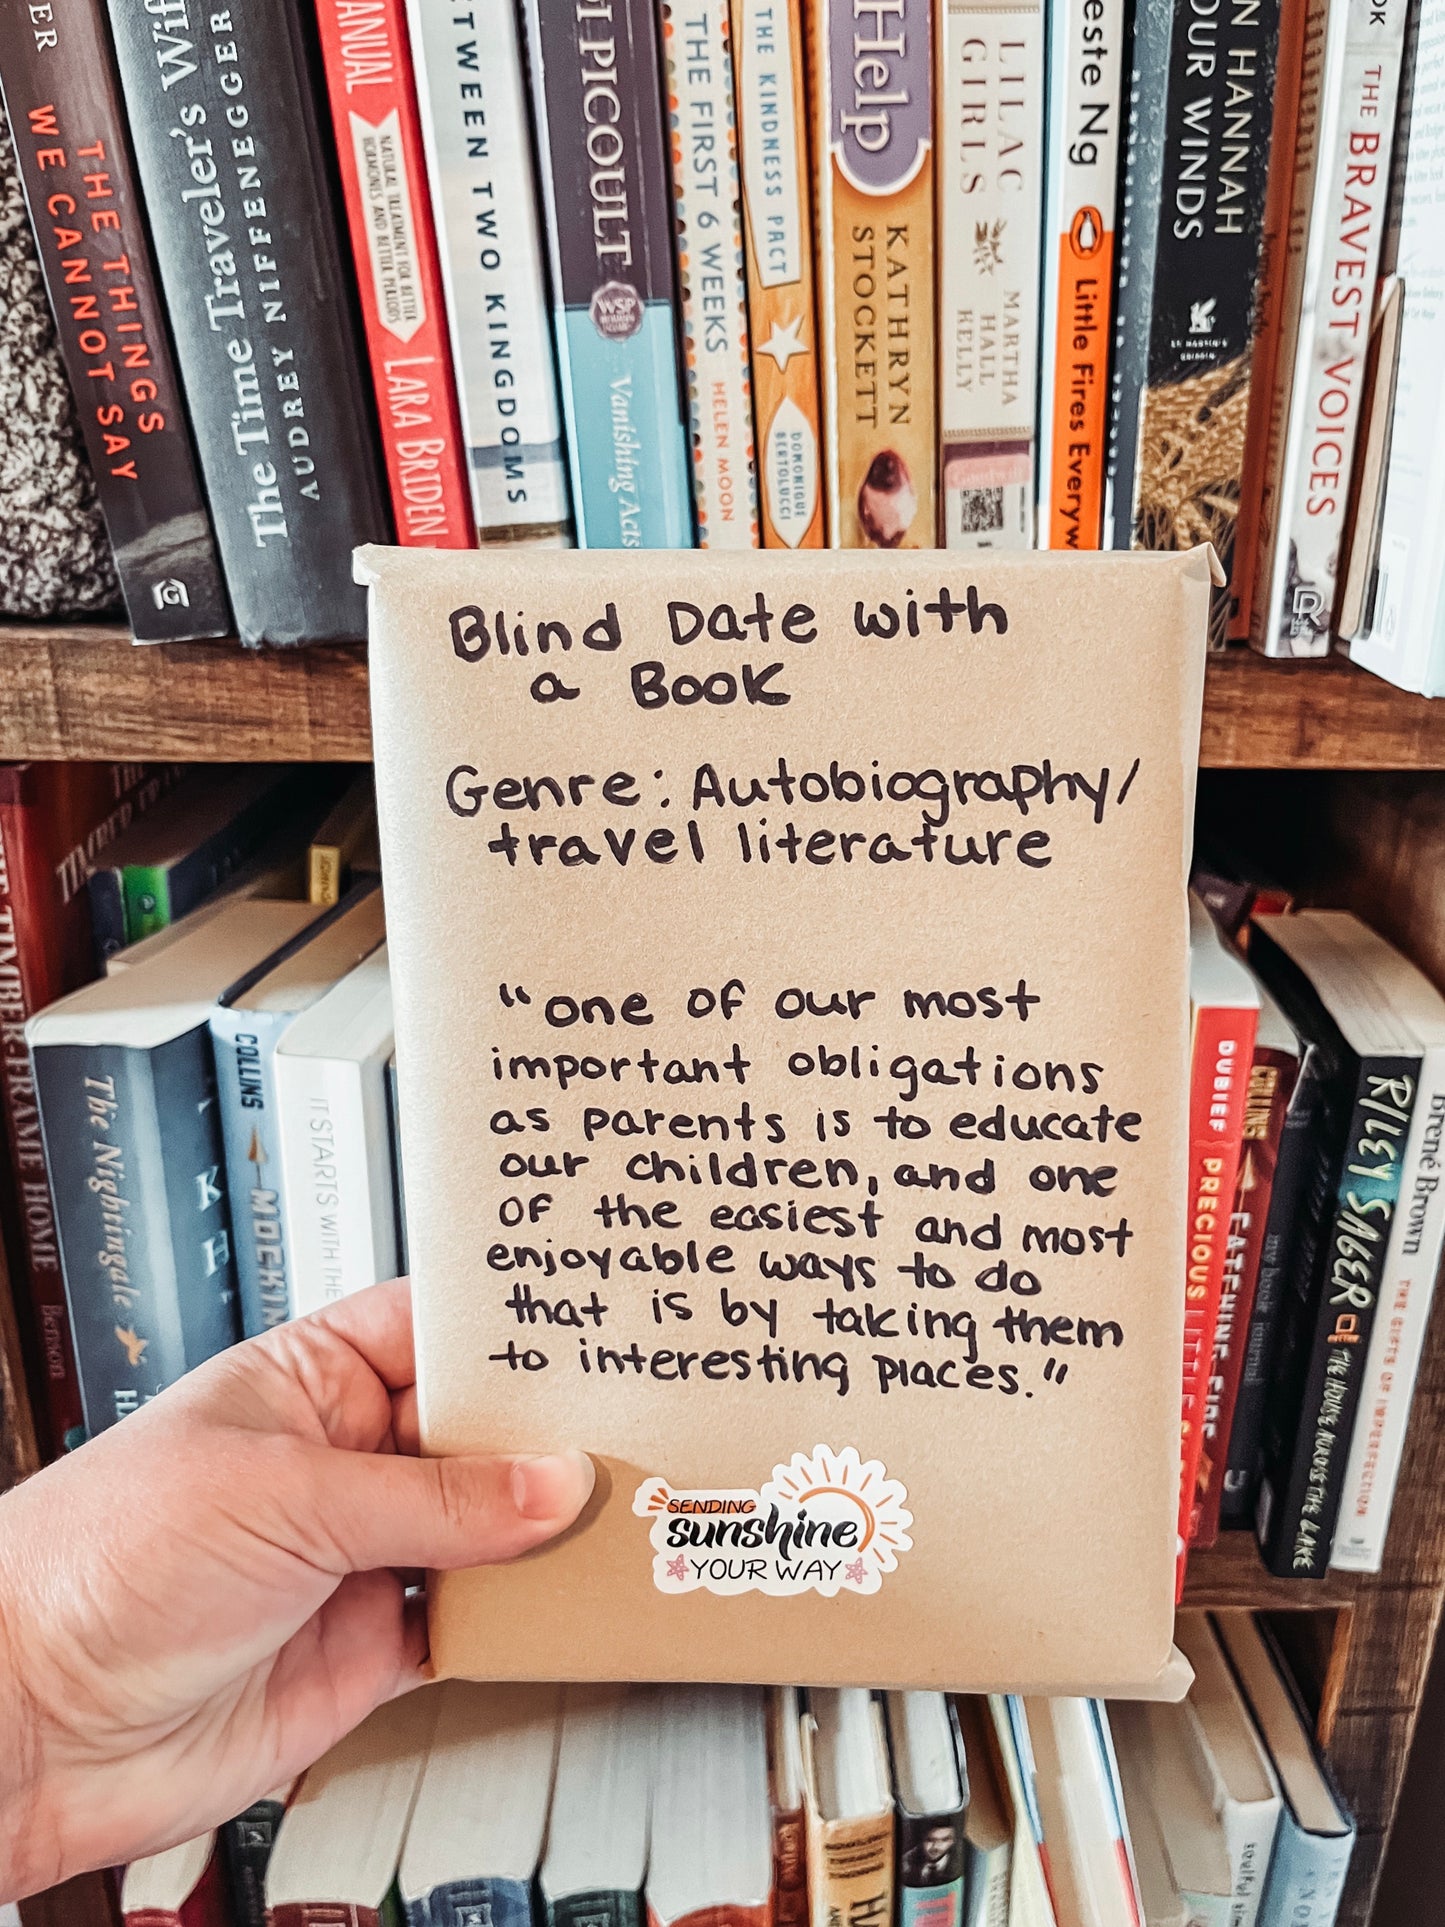 THE THINGS
WE CANNOT SAY
The Time Traveler's Wif
AUDREY NIFFENEGGER
ANUAL
NATURAL TREATMENT FOR BETTER
HORMONES AND BETTER PERIODS
LARA BRIDEN
TWEEN TWO KINGDOMS
PICOULT
WSP
Vanishing Acts
THE FIRST 6 WEEKS
HELEN MOON
THE KINDNESS PACT
DOMONIQUE
BERTOLUCCI
Help
KATHRYN
STOCKETT
LILAC
GIRLS
MARTHA
HALL
KELLY
este Ng
Little Fires Everyw
N HANNAH
OUR WINDS
ST. MARTIN'S
GRIFFIN
THE BRAVEST VOICES
Blind Date with
a Book
Genre: Autobiography/
travel literature
"one of our most
important obligations
as parents is to educate
our children, and one
of the easiest and most
enjoyable ways to do
that is by taking them
to interesting places."
SENDING
sunshine
YOUR WAY
TIMBER-FRAME HOME
Benson
The Nightingale
COLLINS
MOCKIN
IT STARTS WITH THE
DUBIEF
PRECIOUS LITTLE
COLLINS
CATCHING FIRE
RILEY SAGER
THE HOUSE ACROSS THE LAKE
Brené Brown
THE GIFTS OF IMPERFECTION